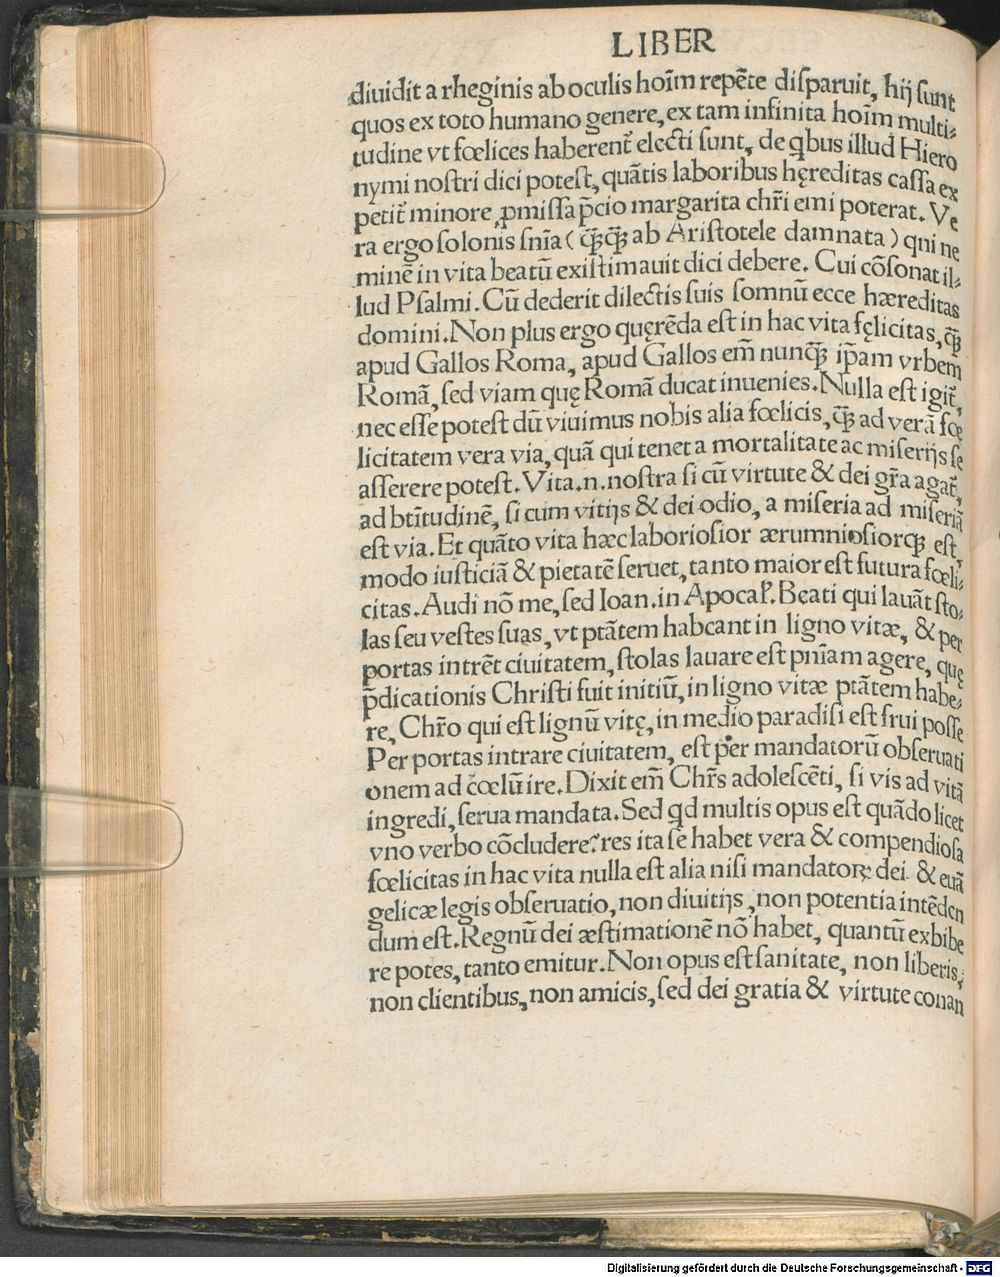 LIBER
diuidit a rheginis ab oculis hoīm repēte diſparuit, hij ſunt
quos ex toto humano genere, ex tam infinita hoīm multi-
tudine vt fœlices haberent᷑ electi ſunt, de ꝗbus illud Hiero
nymi noſtri dici poteſt, quātis laboribus hęreditas caſſa ex
petit᷑ minore ꝓmiſſa p̄cio margarita chr̄i emi poterat. Ve
ra ergo ſolonis ſn̄ia (ꝗ̄ꝗ̄ ab Ariſtotele damnata) qui ne
minē in vita beatū exiſtimauit dici debere. Cui cōſonat il-
lud Pſalmi. Cū dederit dilectis ſuis ſomnū ecce hæreditas
domini. Non plus ergo quęrēda eſt in hac vita fęlicitas, ꝗ̄
apud Gallos Roma, apud Gallos em̄ nunꝗ̄ ip̄am vrbem
Romā, ſed viam quę Romā ducat inuenies. Nulla eſt igit᷑,
nec eſſe poteſt dū viuimus nobis alia fœlicis, ꝗ̄ ad verā fœ
licitatem vera via, quā qui tenet a mortalitate ac miſerijs ſe
aſſerere poteſt. Vita .n. noſtra ſi cū virtute & dei gr̄a agat᷑,
ad bt̄itudinē, ſi cum vitijs & dei odio, a miſeria ad miſeriā
eſt via. Et quāto vita hæc laborioſior ærumnioſiorqꝫ eſt,
modo iuſticiā & pietatē ſeruet, tanto maior eſt futura fœli-
citas. Audi nō me, ſed Ioan. in Apocal̓. Beati qui lauāt ſto-
las ſeu veſtes ſuas, vt ptātem habcant in ligno vitæ, & per
portas intrēt ciuitatem, ſtolas lauare eſt pn̄iam agere, quę
p̄dicationis Chriſti fuit initiū, in ligno vitæ ptātem habe-
re, Chr̄o qui eſt lignū vitę, in medio paradiſi eſt frui poſſe
Per portas intrare ciuitatem, eſt per mandatorū obſeruati
onem ad cœlū ire. Dixit em̄ Chr̄s adoleſcēti, ſi vis ad vitā
ingredi, ſerua mandata. Sed ꝗd multis opus eſt quādo licet
vno verbo cōcludere? res ita ſe habet vera & compendioſa
fœlicitas in hac vita nulla eſt alia niſi mandatoꝝ dei & euā
gelicæ legis obſeruatio, non diuitijs, non potentia intēden
dum eſt. Regnū dei æſtimationē nō habet, quantū exhibe
re potes, tanto emitur. Non opus eſt ſanitate, non liberis,
non clientibus, non amicis, ſed dei gratia & virtute conan
Digitalisierung gefördert durch die Deutsche Forschungsgemeinschaft - DFG